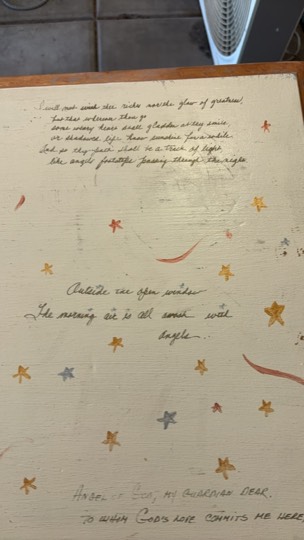 I will not wish thee riches nor the glow of greatness,
but that wherever thou go
some weary heart shall gladden at thy smile
or shadowed life know sunshine for a while
And so thy path shall be a track of light,
like angels footsteps passing through the night.
Outside the open window
The morning air is all awash with
angels...
ANGEL OF GOD, MY GUARDIAN DEAR,
TO WHOM GOD'S LOVE COMMITS ME HERE,